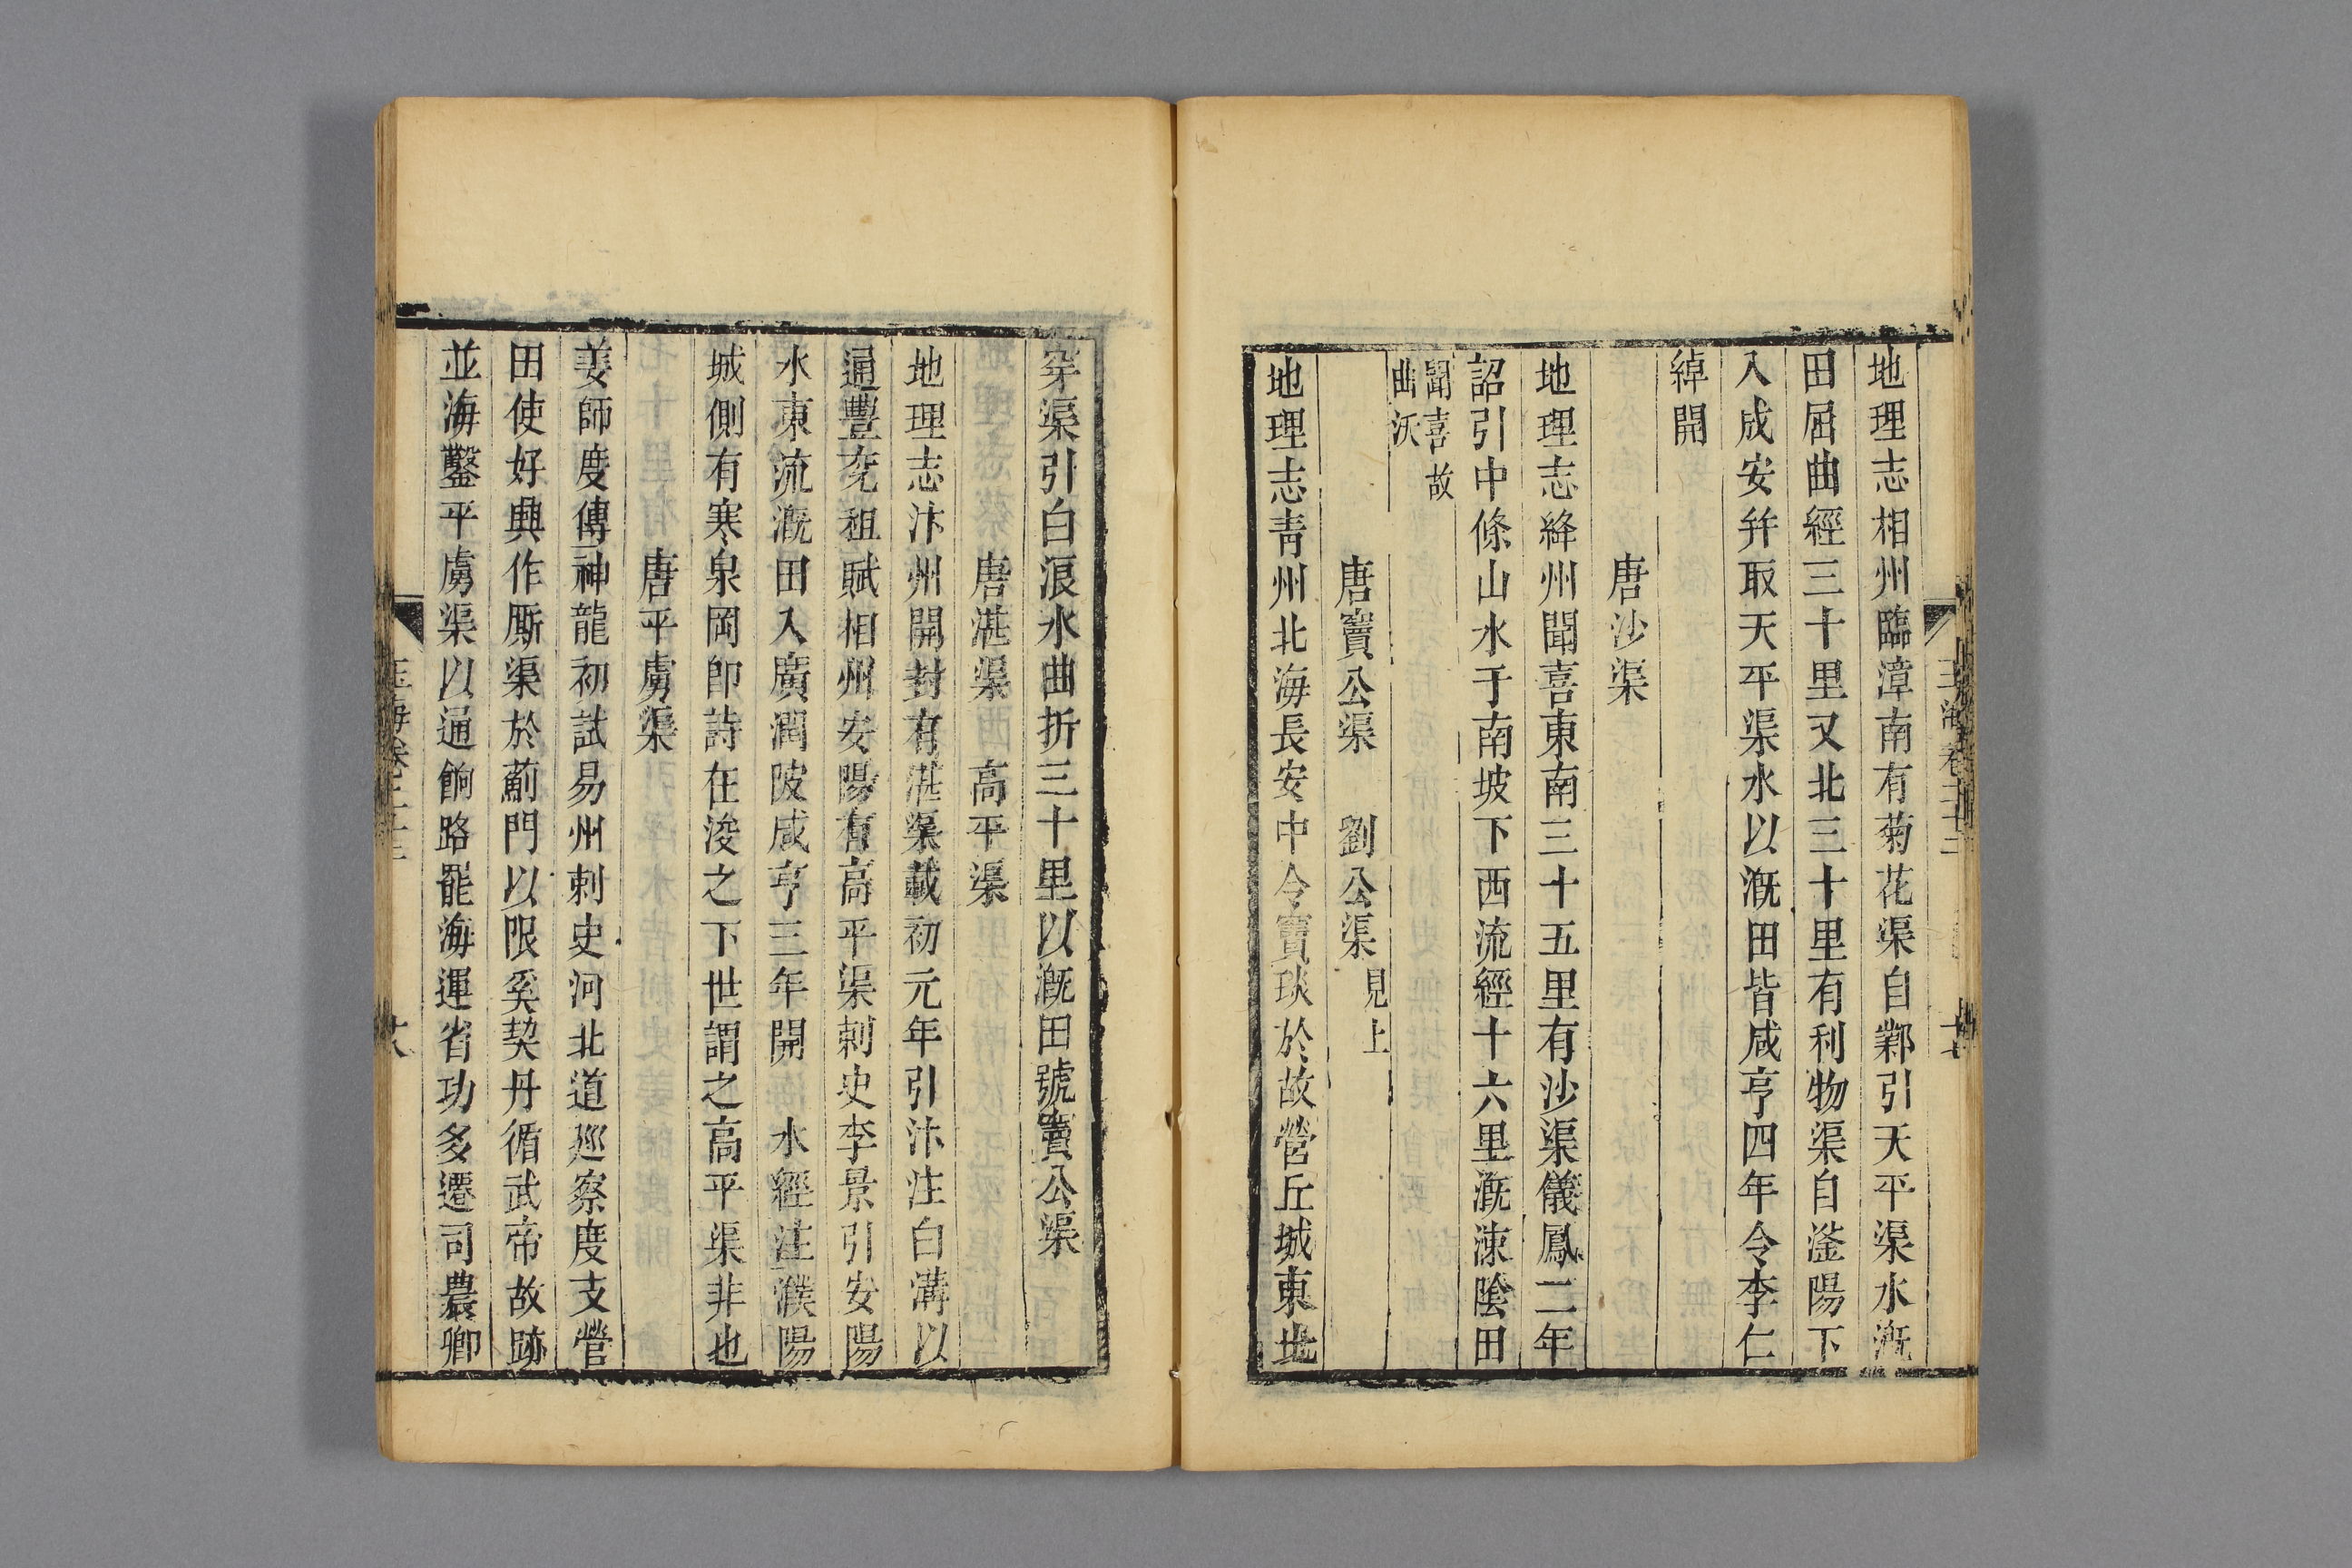 地理志相州臨漳南有菊花渠自鄴引天平渠水漑
田屈曲經三十里又北三十里有利物渠自滏陽下
入成安幷取天平渠水以漑田皆咸亨四年令李仁
綽開
唐沙渠
地理志絳州聞喜東南三十五里有沙渠儀鳳二年
詔引中條山水于南坡下西流經十六里漑涑陰田
聞喜故
曲沃
唐竇公渠 劉公渠 見上
地理志青州北海長安中令竇琰於故營丘城東北
穿渠引白浪水曲折三十里以漑田號竇公渠
唐湛渠 高平渠
地理志汴州開封有湛渠載初元年引汴注白溝以
通豐兗租賦相州安陽有高平渠刺史李景引安陽
水東流漑田入廣潤陂咸亨三年開 水經注濮陽
城側有寒泉岡卽詩在浚之下世謂之高平渠非也
唐平虜渠
姜師度傳神龍初試易州刺史河北道廵察度支營
田使好興作厮渠於薊門以限奚契丹循武帝故跡
並海鑿平虜渠以通餉路罷海運省功多遷司農卿